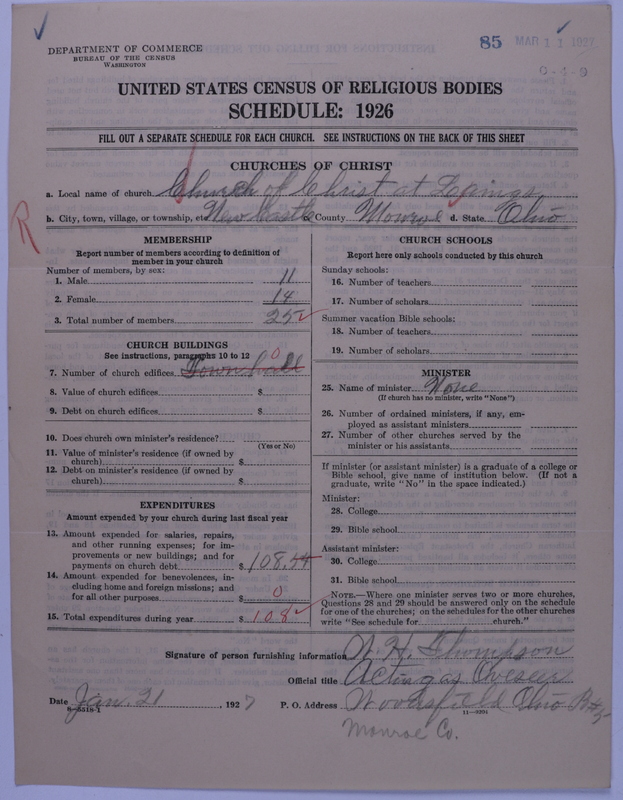 DEPARTMENT OF COMMERCE
BUREAU OF THE CENSUS
WASHINGTON
85 MAR 11 1927
0-4-9
UNITED STATES CENSUS OF RELIGIOUS BODIES
SCHEDULE: 1926
FILL OUT A SEPARATE SCHEDULE FOR EACH CHURCH. SEE INSTRUCTIONS ON THE BACK OF THIS SHEET
CHURCHES OF CHRIST
a. Local name of church Church of Christ at
b. City, town, village, or township, etc. New Castle c. County Monroe d. State Ohio
R
MEMBERSHIP
Report number of members according to definition of
member in your church
Number of members, by sex:
1. Male 11
2. Female 14
3. Total number of members 25
CHURCH BUILDINGS
See instructions, paragraphs 10 to 12
7. Number of church edifices Town hall 0
8. Value of church edifices $
9. Debt on church edifices $
10. Does church own minister's residence?
(Yes or No)
11. Value of minister's residence (if owned by
church) $
12. Debt on minister's residence (if owned by
church) $
EXPENDITURES
Amount expended by your church during last fiscal year
13. Amount expended for salaries, repairs,
and other running expenses; for im-
provements or new buildings; and for
payments on church debt $108.54
14. Amount expended for benevolences, in-
cluding home and foreign missions; and
for all other purposes $ 0
15. Total expenditures during year $108
CHURCH SCHOOLS
Report here only schools conducted by this church
Sunday schools:
16. Number of teachers
17. Number of scholars
Summer vacation Bible schools:
18. Number of teachers
19. Number of scholars
MINISTER
25. Name of minister None
(If church has no minister, write "None")
26. Number of ordained ministers, if any, em-
ployed as assistant ministers
27. Number of other churches served by the
minister or his assistants
If minister (or assistant minister) is a graduate of a college or
Bible school, give name of institution below. (If not a
graduate, write "No" in the space indicated.)
Minister:
28. College
29. Bible school
Assistant minister:
30. College
31. Bible school
NOTE.—Where one minister serves two or more churches,
Questions 28 and 29 should be answered only on the schedule
for one of the churches; on the schedules for the other churches
write "See schedule for church."
Signature of person furnishing information H. Thompson
Official title Acting as
Date Jan. 21, 1927 P. O. Address Woodsfield Ohio
8-5518-1
Monroe Co.